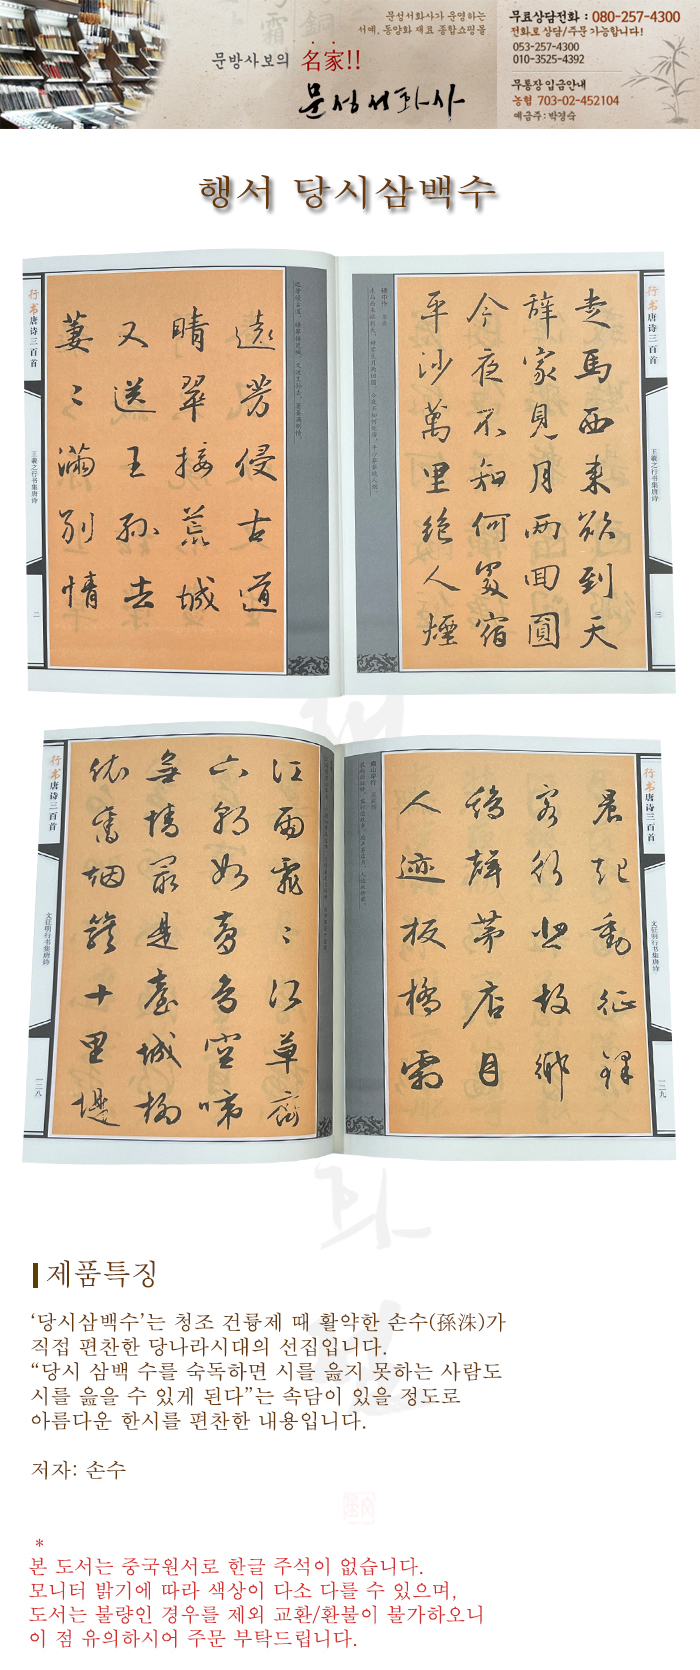 문성서화사가 운영하는
서예, 동양화 재료 종합쇼핑몰
문방사보의 名家!!
문성서화사
무료상담전화 : 080-257-4300
전화로 상담/주문 가능합니다!
053-257-4300
010-3525-4392
무통장 입금안내
농협 703-02-452104
예금주:박경숙
행서 당시삼백수
行书唐诗三百首
王羲之行书集唐诗
三
走馬西来欲到天
辞家見月兩回圓
今夜不知何處宿
平沙萬里絶人煙
碛中作
行书唐诗三百首
王羲之行书集唐诗
二
遠芳侵古道
晴翠接荒城
又送王孙去
萋〻滿别情
行书唐诗三百首
文征明行书集唐诗
一二九
晨起動征鐸
客行悲故鄉
鷄聲茅店月
人迹板橋霜
商山早行
行书唐诗三百首
文征明行书集唐诗
一二八
江雨霏〻江草齊
六朝如夢鳥空啼
無情最是臺城柳
依舊烟籠十里堤
제품특징
‘당시삼백수’는 청조 건륭제 때 활약한 손수(孫洙)가
직접 편찬한 당나라시대의 선집입니다.
“당시 삼백 수를 숙독하면 시를 읊지 못하는 사람도
시를 읊을 수 있게 된다”는 속담이 있을 정도로
아름다운 한시를 편찬한 내용입니다.
저자: 손수
*
본 도서는 중국원서로 한글 주석이 없습니다.
모니터 밝기에 따라 색상이 다소 다를 수 있으며,
도서는 불량인 경우를 제외 교환/환불이 불가하오니
이 점 유의하시어 주문 부탁드립니다.